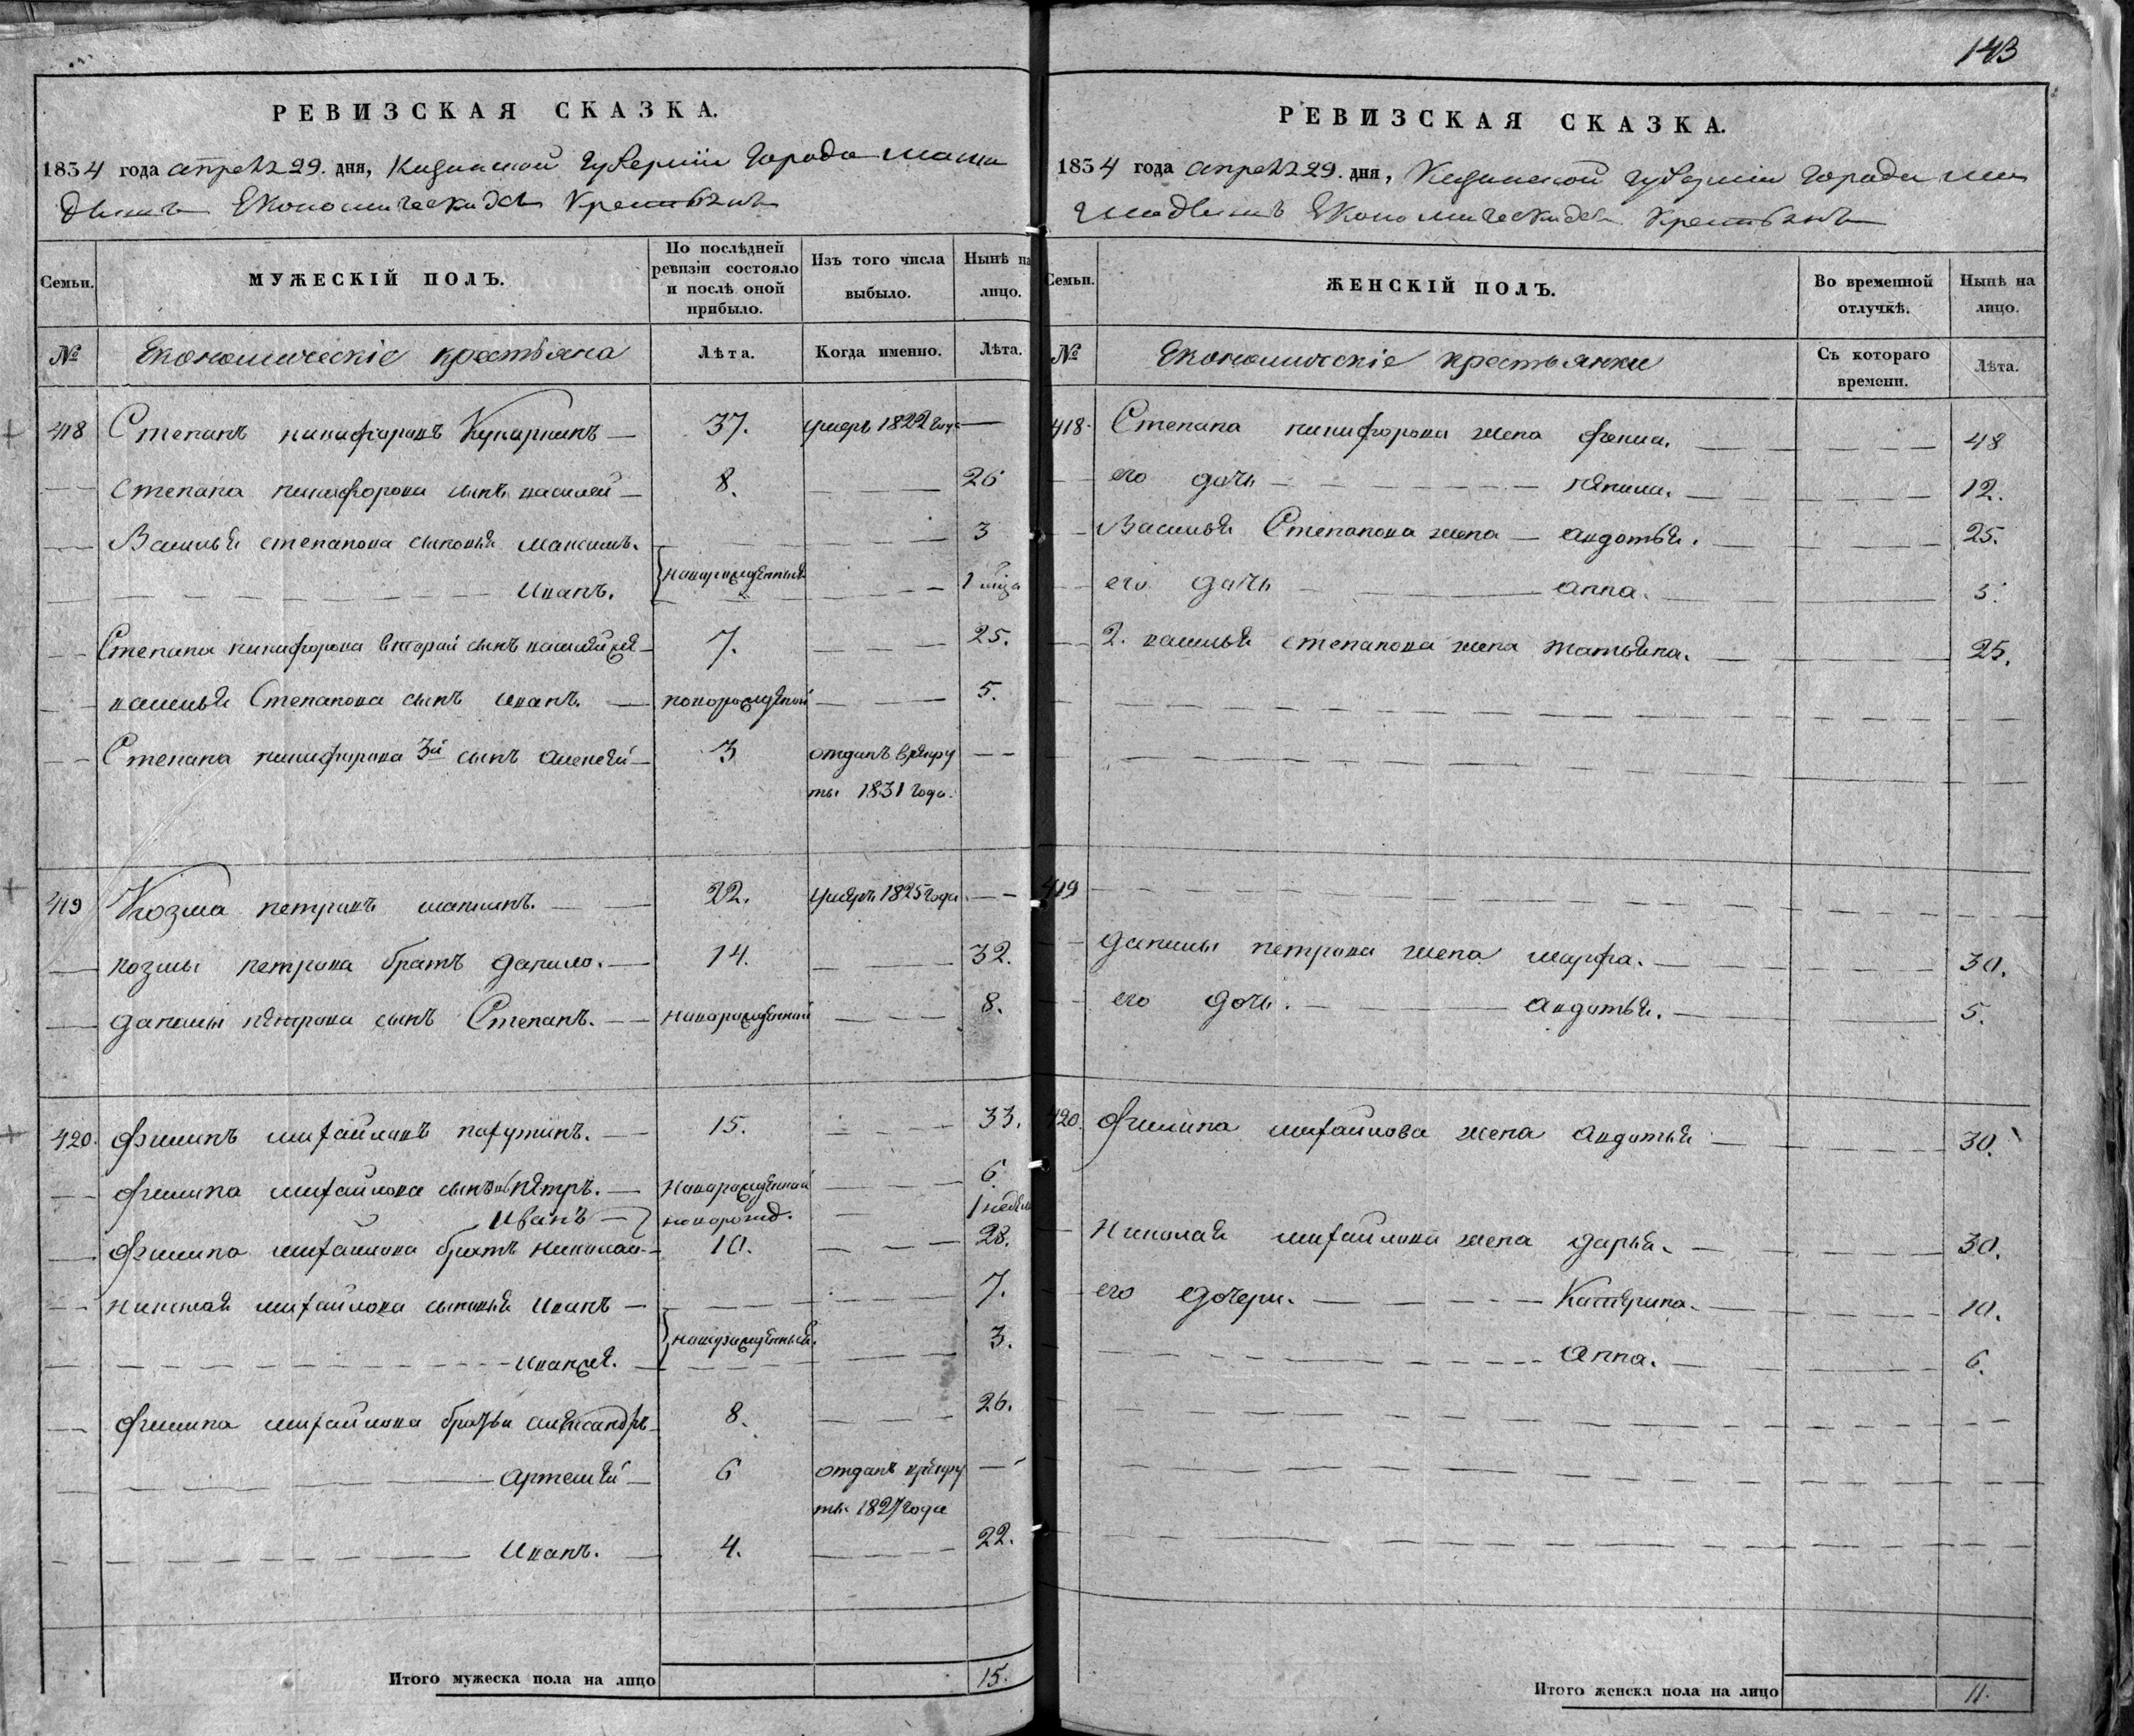 143
РЕВИЗСКАЯ СКАЗКА.
1834 года апреля 29. дня, Казанской Губернии Города
Экономическихъ Крестьянъ
Семьи.
МУЖЕСКІЙ ПОЛЪ.
По послѣдней ревизіи состояло и послѣ оной прибыло.
Изъ того числа выбыло.
Нынѣ на лицо.
№
Экономическіе крестьяна
Лѣта.
Когда именно.
Лѣта.
418 Степанъ никифоровъ 37. умеръ 1822 году —
Степана никифорова сынъ василей 8. 26
Василья степанова сыновья максимъ. 3
Иванъ. новорожденныя 1 мца
Степана никифорова второй сынъ василей 7. 25.
василья Степанова сынъ иванъ. новорожденой 5.
Степана никифорова 3й сынъ алексей 3 отданъ в рекру
ты 1831 года.
419 Козма петровъ 22. умеръ 1825 года. —
козмы петрова братъ данило. 14. 32.
данилы петрова сынъ Степанъ. новорожденной 8.
420. филипъ михайловъ 15. 33.
филипа михайлова сынъ петръ. новорожденной 6.
Иванъ новорожд. 1 неделя
филипа михайлова братъ николай 10. 28.
николая михайлова сыновья иванъ 7.
новорожденныя. 3.
филипа михайлова братья александръ 8. 26.
артемей 6 отданъ в рекру
ты 1827 года
иванъ. 4. 22.
Итого мужеска пола на лицо 15.
РЕВИЗСКАЯ СКАЗКА.
1834 года апреля 29. дня, Казанской Губернии Города
Экономическихъ Крестьянъ
Семьи.
ЖЕНСКІЙ ПОЛЪ.
Во временной отлучкѣ.
Нынѣ на лицо.
№
Экономическіе крестьянки
Съ котораго времени.
Лѣта.
418. Степана никифорова жена 48
его дочь 12.
Василья Степанова жена авдотья. 25.
его дочь анна.
2. василья степанова жена татьяна. 25.
419
данилы петрова жена марфа. 30.
его дочь. авдотья. 5.
420. филипа михайлова жена авдотья 30.
николая михайлова жена дарья. 30.
его дочери. Катерина. 10.
анна. 6.
Итого женска пола на лицо 11.